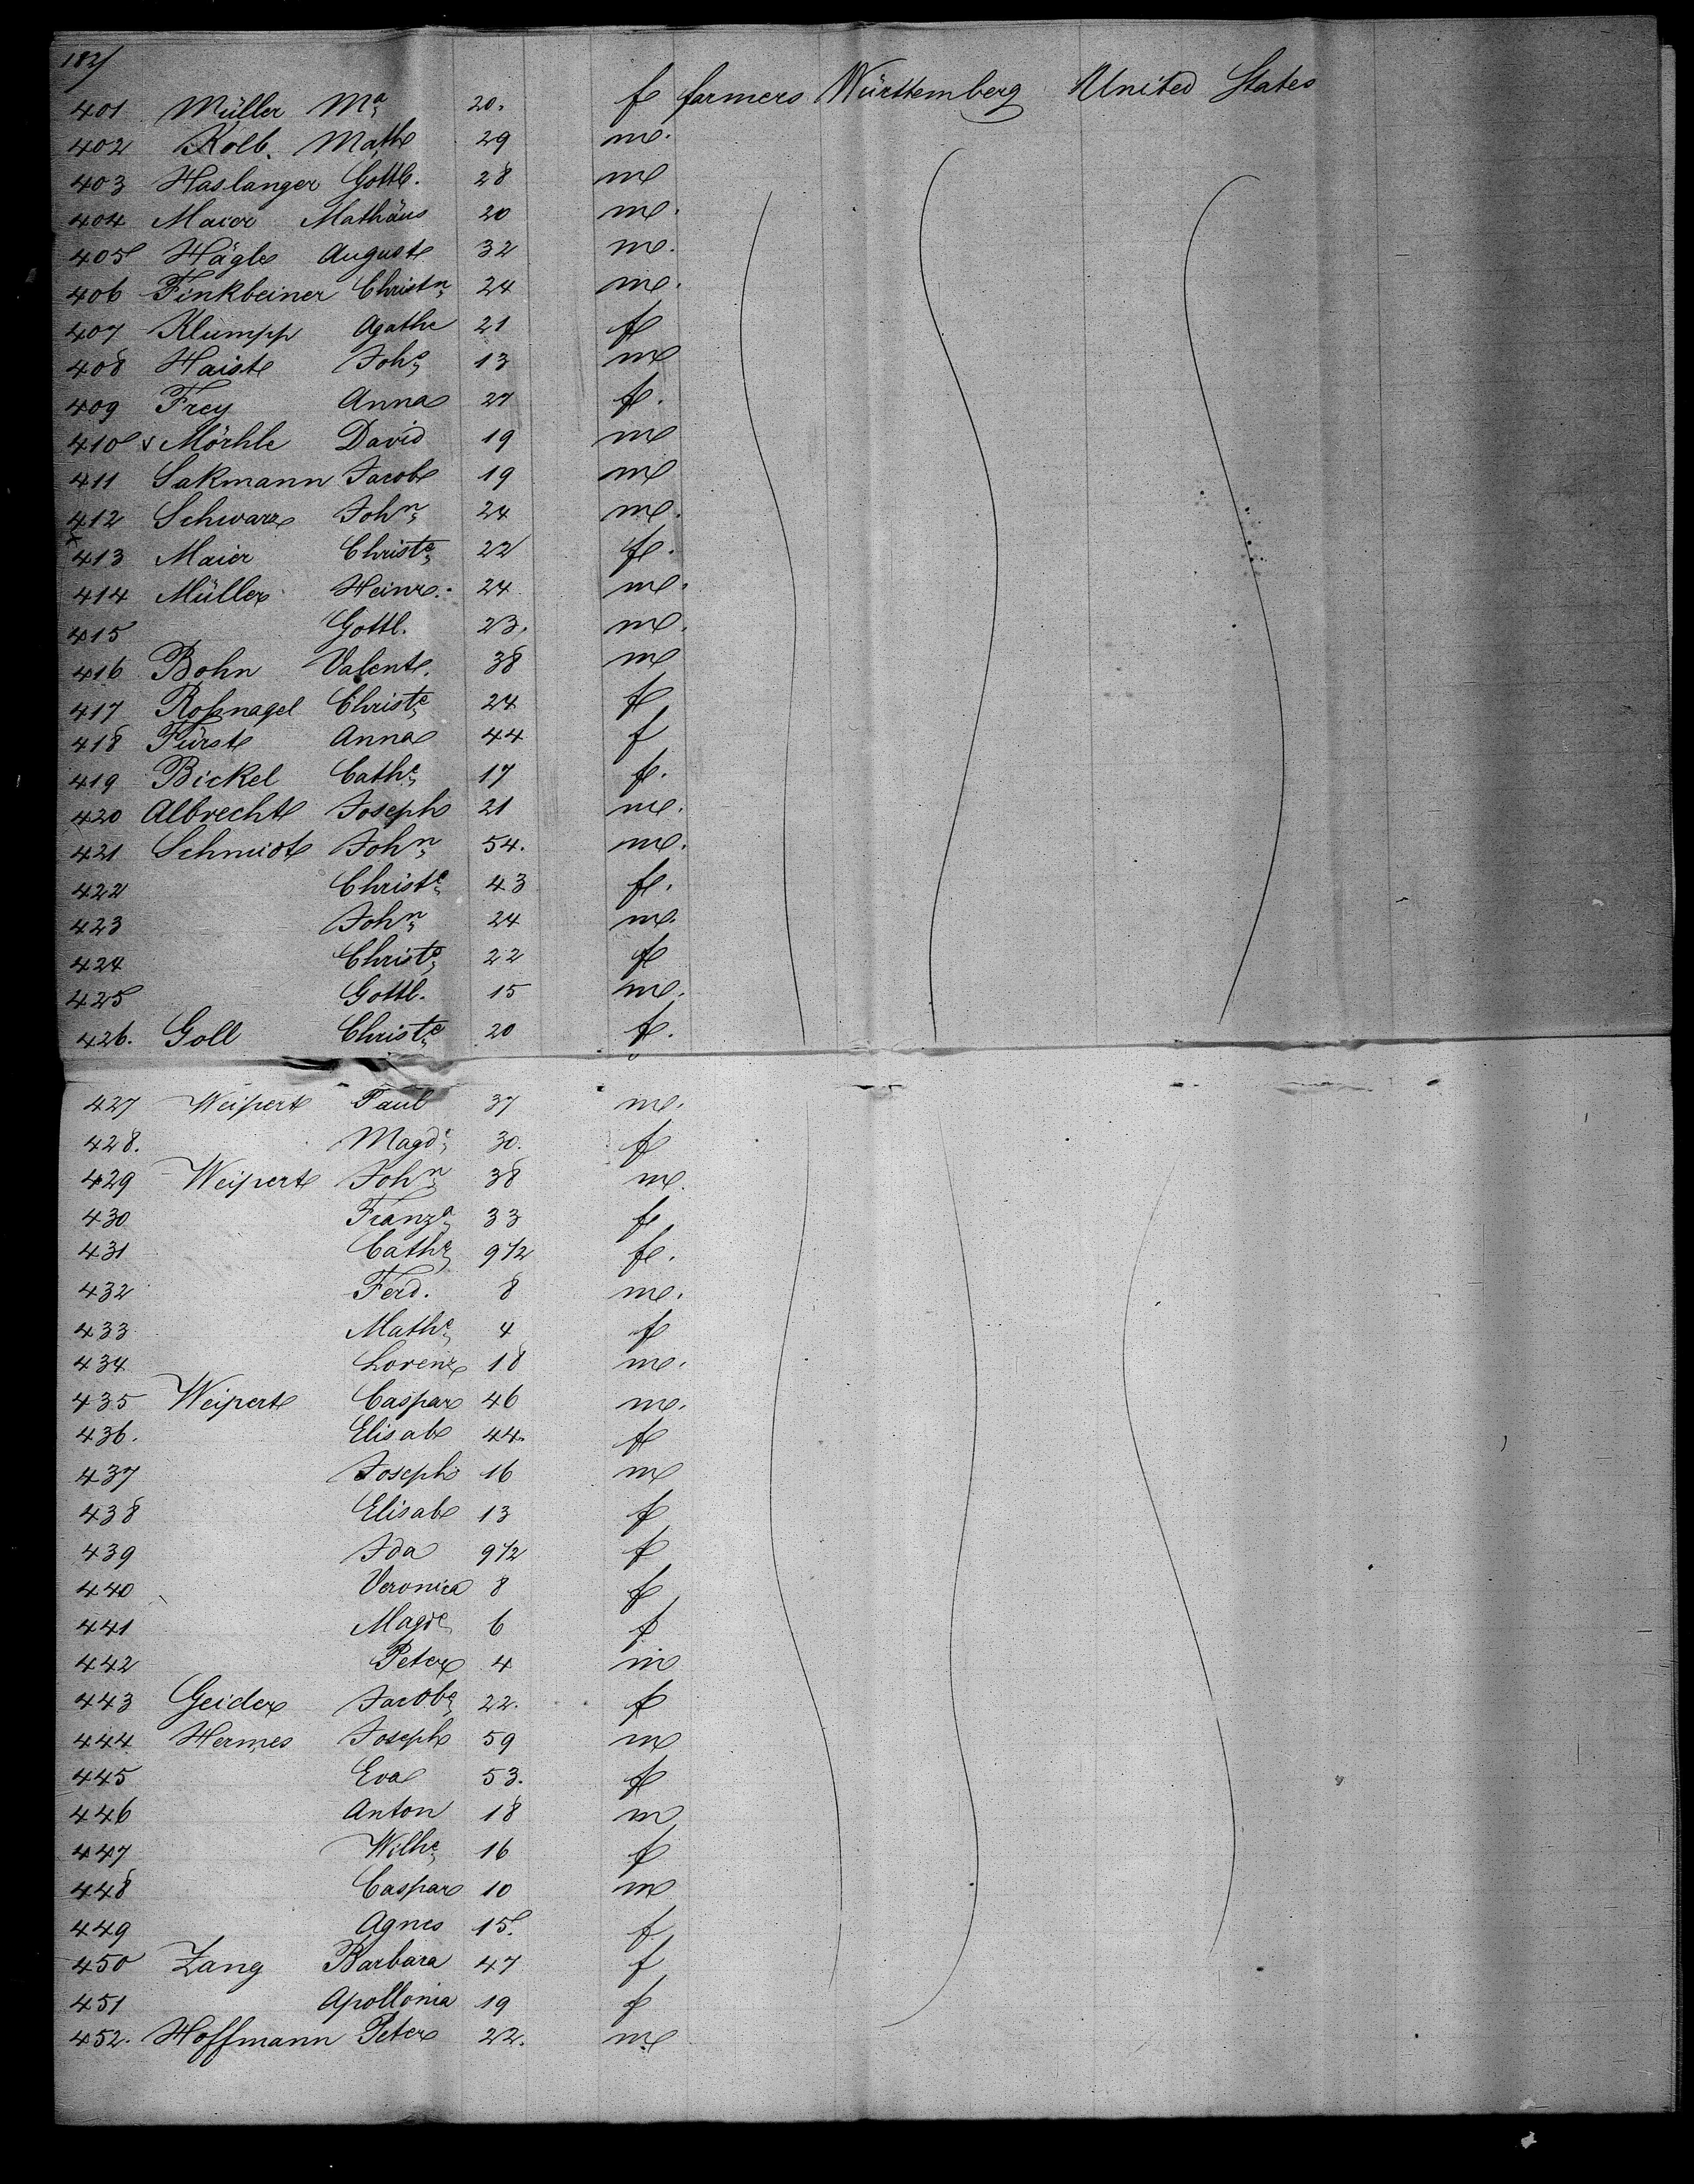 182/
401 Müller Ma 20. f farmers Württemberg United States
402 Kolb. Math 29 m.
403 Haslanger Gottb. 28 m
404 Maier Mathäus 20 m.
405 Hägle August 32 m.
406 Finkbeiner Christn 24 m.
407 Klumpp Agathe 21 f
408 Haist Johe 13 m
409 Frey Anna 27 f.
410 Mörhle David 19 m
411 Sakmann Jacob 19 m
412 Schwarz John 24 m.
x 413 Maier Christe 22 f.
414 Müller Heinr. 24 m.
415 Gottl. 23. m.
416 Bohn Valent. 38 m
417 Roßnagel Christe 24 f
418 Fürst Anna 44 f
419 Bickel Cathe 17 f.
420 Albrecht Joseph 21 m.
421 Schmidt John 54. m.
422 Christe 43 f.
423 John 24 m.
424 Christe 22 f
425 Gottl. 15 m.
426. Goll Christe 20 f.
427 Weipert Paul 37 m.
428. Magde 30. f
429 Weipert John 38 m.
430 Franza 33 f
431 Cathe 9 1/2 f.
432 Ferd. 8 m.
433 Mathe 4 f
434 Lorenz 18 m.
435 Weipert Caspar 46 m.
436. Elisab 44. f
437 Joseph 16 m
438 Elisab 13 f
439 Ida 9 1/2 f
440 Veronica 8 f
441 Magde 6 f
442 Peter 4 m
443 Geider Jacobe 22. f
444 Hermes Joseph 59 m
445 Eva 53. f
446 Anton 18 m
447 Wilhe 16 f
448 Caspar 10 m
449 Agnes 15. f
450 Zang Barbara 47 f
451 Apollonia 19 f
452. Hoffmann Peter 22. m